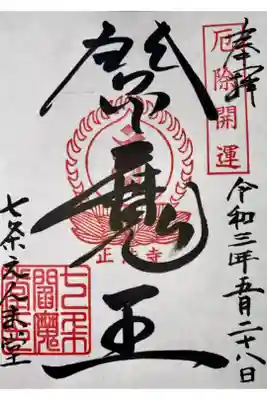 奉拝
厄除開運
令和三年五月二十八日
魔王
七条えんま堂
七条
閻魔
堂